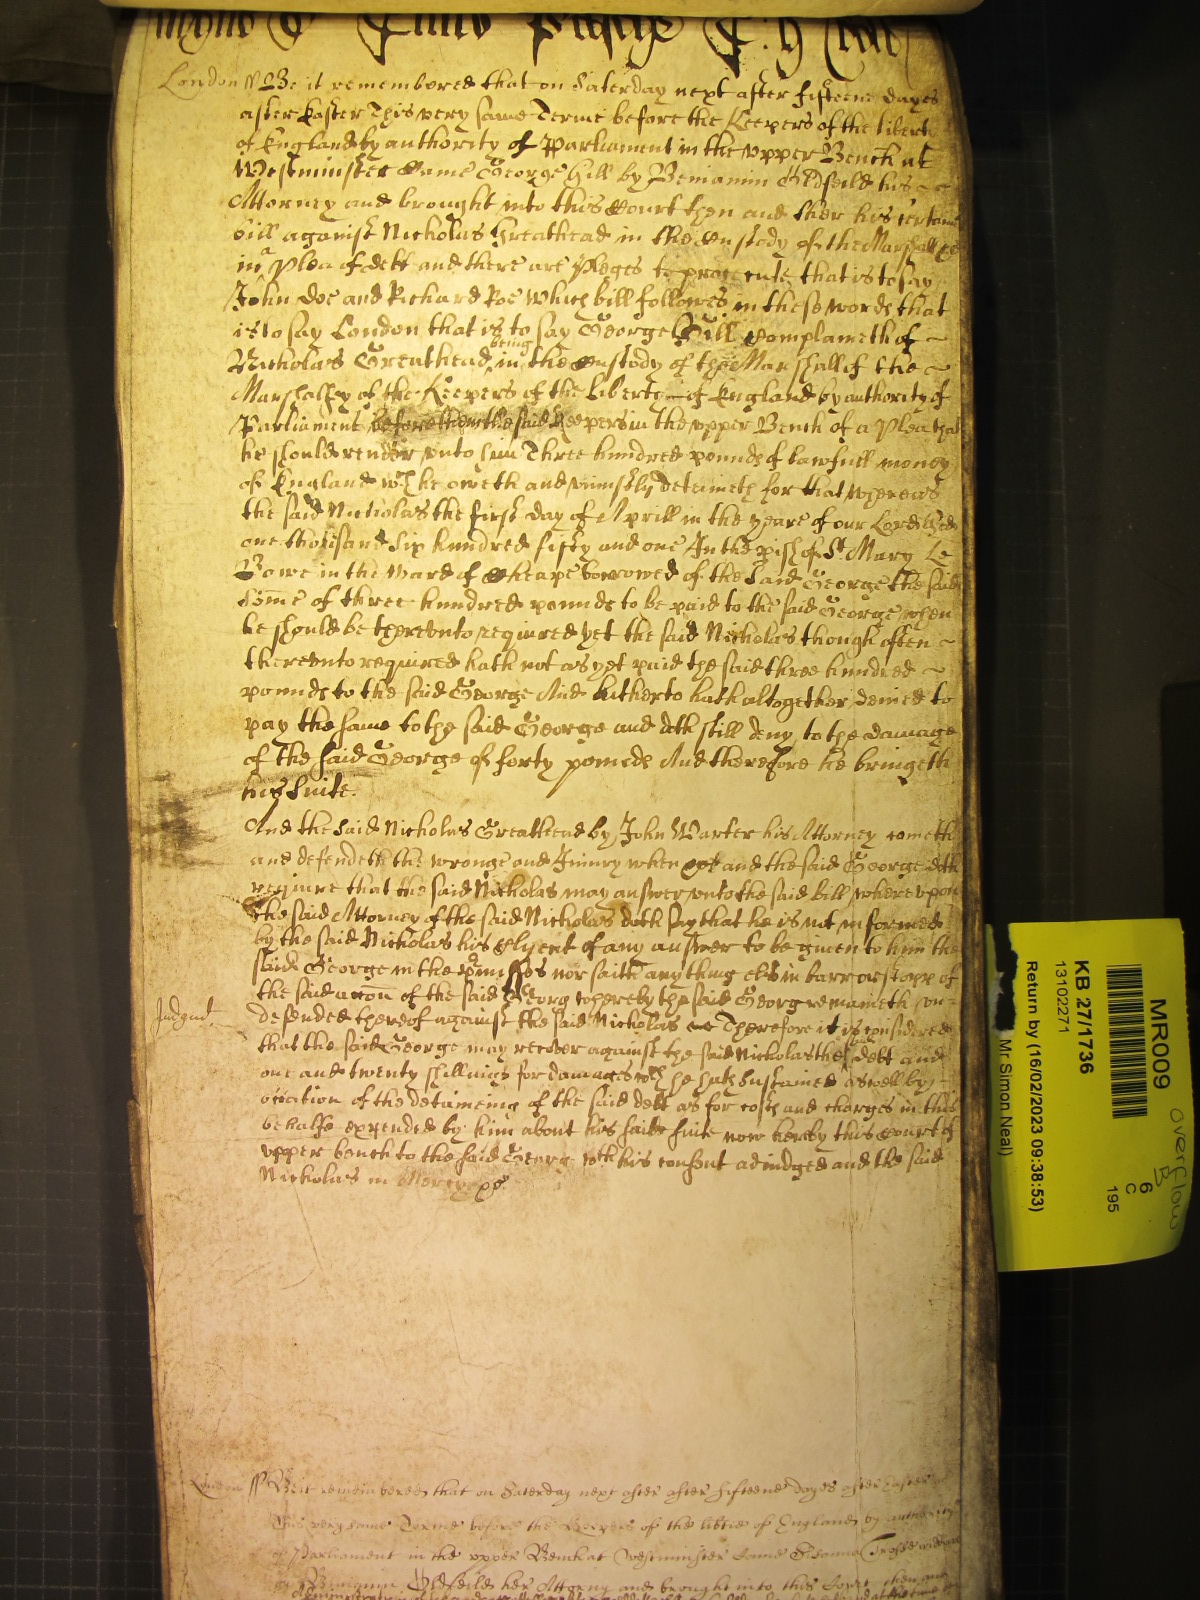 London ss Be it remembered that on Saterday next after fifteene dayes
after Easter This very same Terme before the Keepers of the libertie
of England by authority of Parliament in the vpper Bench at
Westminster Came George Hill by Beniamin Oldfeild his
Attorney and brought into this Court then and ther his certaine
bill against Nicholas Greathead in the Custody of the Marshall &c
in a Plea of debt and there are Pleges to prosecute that is to say
John Doe and Richard Roe Which bill followes in these words that
is to say London that is to say George Hill Complaineth of
Nicholas Greathead being in the Custody of the Marshall of the
Marshalsey of the Keepers of the Liberty of England by authority of
Parliament before them the said Keepers in the vpper Bench of a Plea that
he should render vnto him Three hundred pounds of lawfull money
of England wch he oweth and vniustly deteineth for that whereas
the said Nicholas the first day of Aprill in the yeare of our Lord
one thousand Six hundred fifty and one In the pish of St Mary Le
Bowe in the Ward of Cheape borrowed of the said George the said
Some of three hundred pounds to be paid to the said George when
he should be therevnto required yet the said Nicholas though often
therevnto required hath not as yet paid the said three hundred
pounds to the said George And hitherto hath altogether denied to
pay the same to the said George and doth still deny to the damage
of the said George of forty pounds And therefore he bringeth
his suite.
And the said Nicholas Greathead by John Warter his Attorney cometh
and defendeth the wronge and Iniury when &c and the said George doth
require that the said Nicholas may answer vnto the said bill wherevpon
the said Attorney of the said Nicholas doth say that he is not informed
by the said Nicholas his Clyent of any answer to be given to him the
said George in the pmisses nor saith any thing els in barr or stopp of
the said accon of the said George whereby the said George remaineth vn-
Judgmt
defended thereof against the said Nicholas &c Therefore it is considered
that the said George may recover against the said Nicholas the said debt and
one and twenty shillings for damages wch he hath sustained aswell by
occasion of the deteineing of the said debt as for costs and charges in this
behalfe expended by him about his suite now hereby this Court of
vpper bench to the said George wth his consent adiudged and the said
Nicholas in Mercy &c
London ss Be it remembered that on Saterday next after after fifteene dayes after Easter
This very same Terme before the Keepers of the libtie of England by authority
of Parliament in the vpper Bench at Westminster Came Susanna
by Beniamin Oldfeild her Attorny and brought into this Court then and
MR009
KB 27/1736
13102271
Return by (16/02/2023 09:38:53)
Mr Simon Neal)
6
C
195
Overflow
B